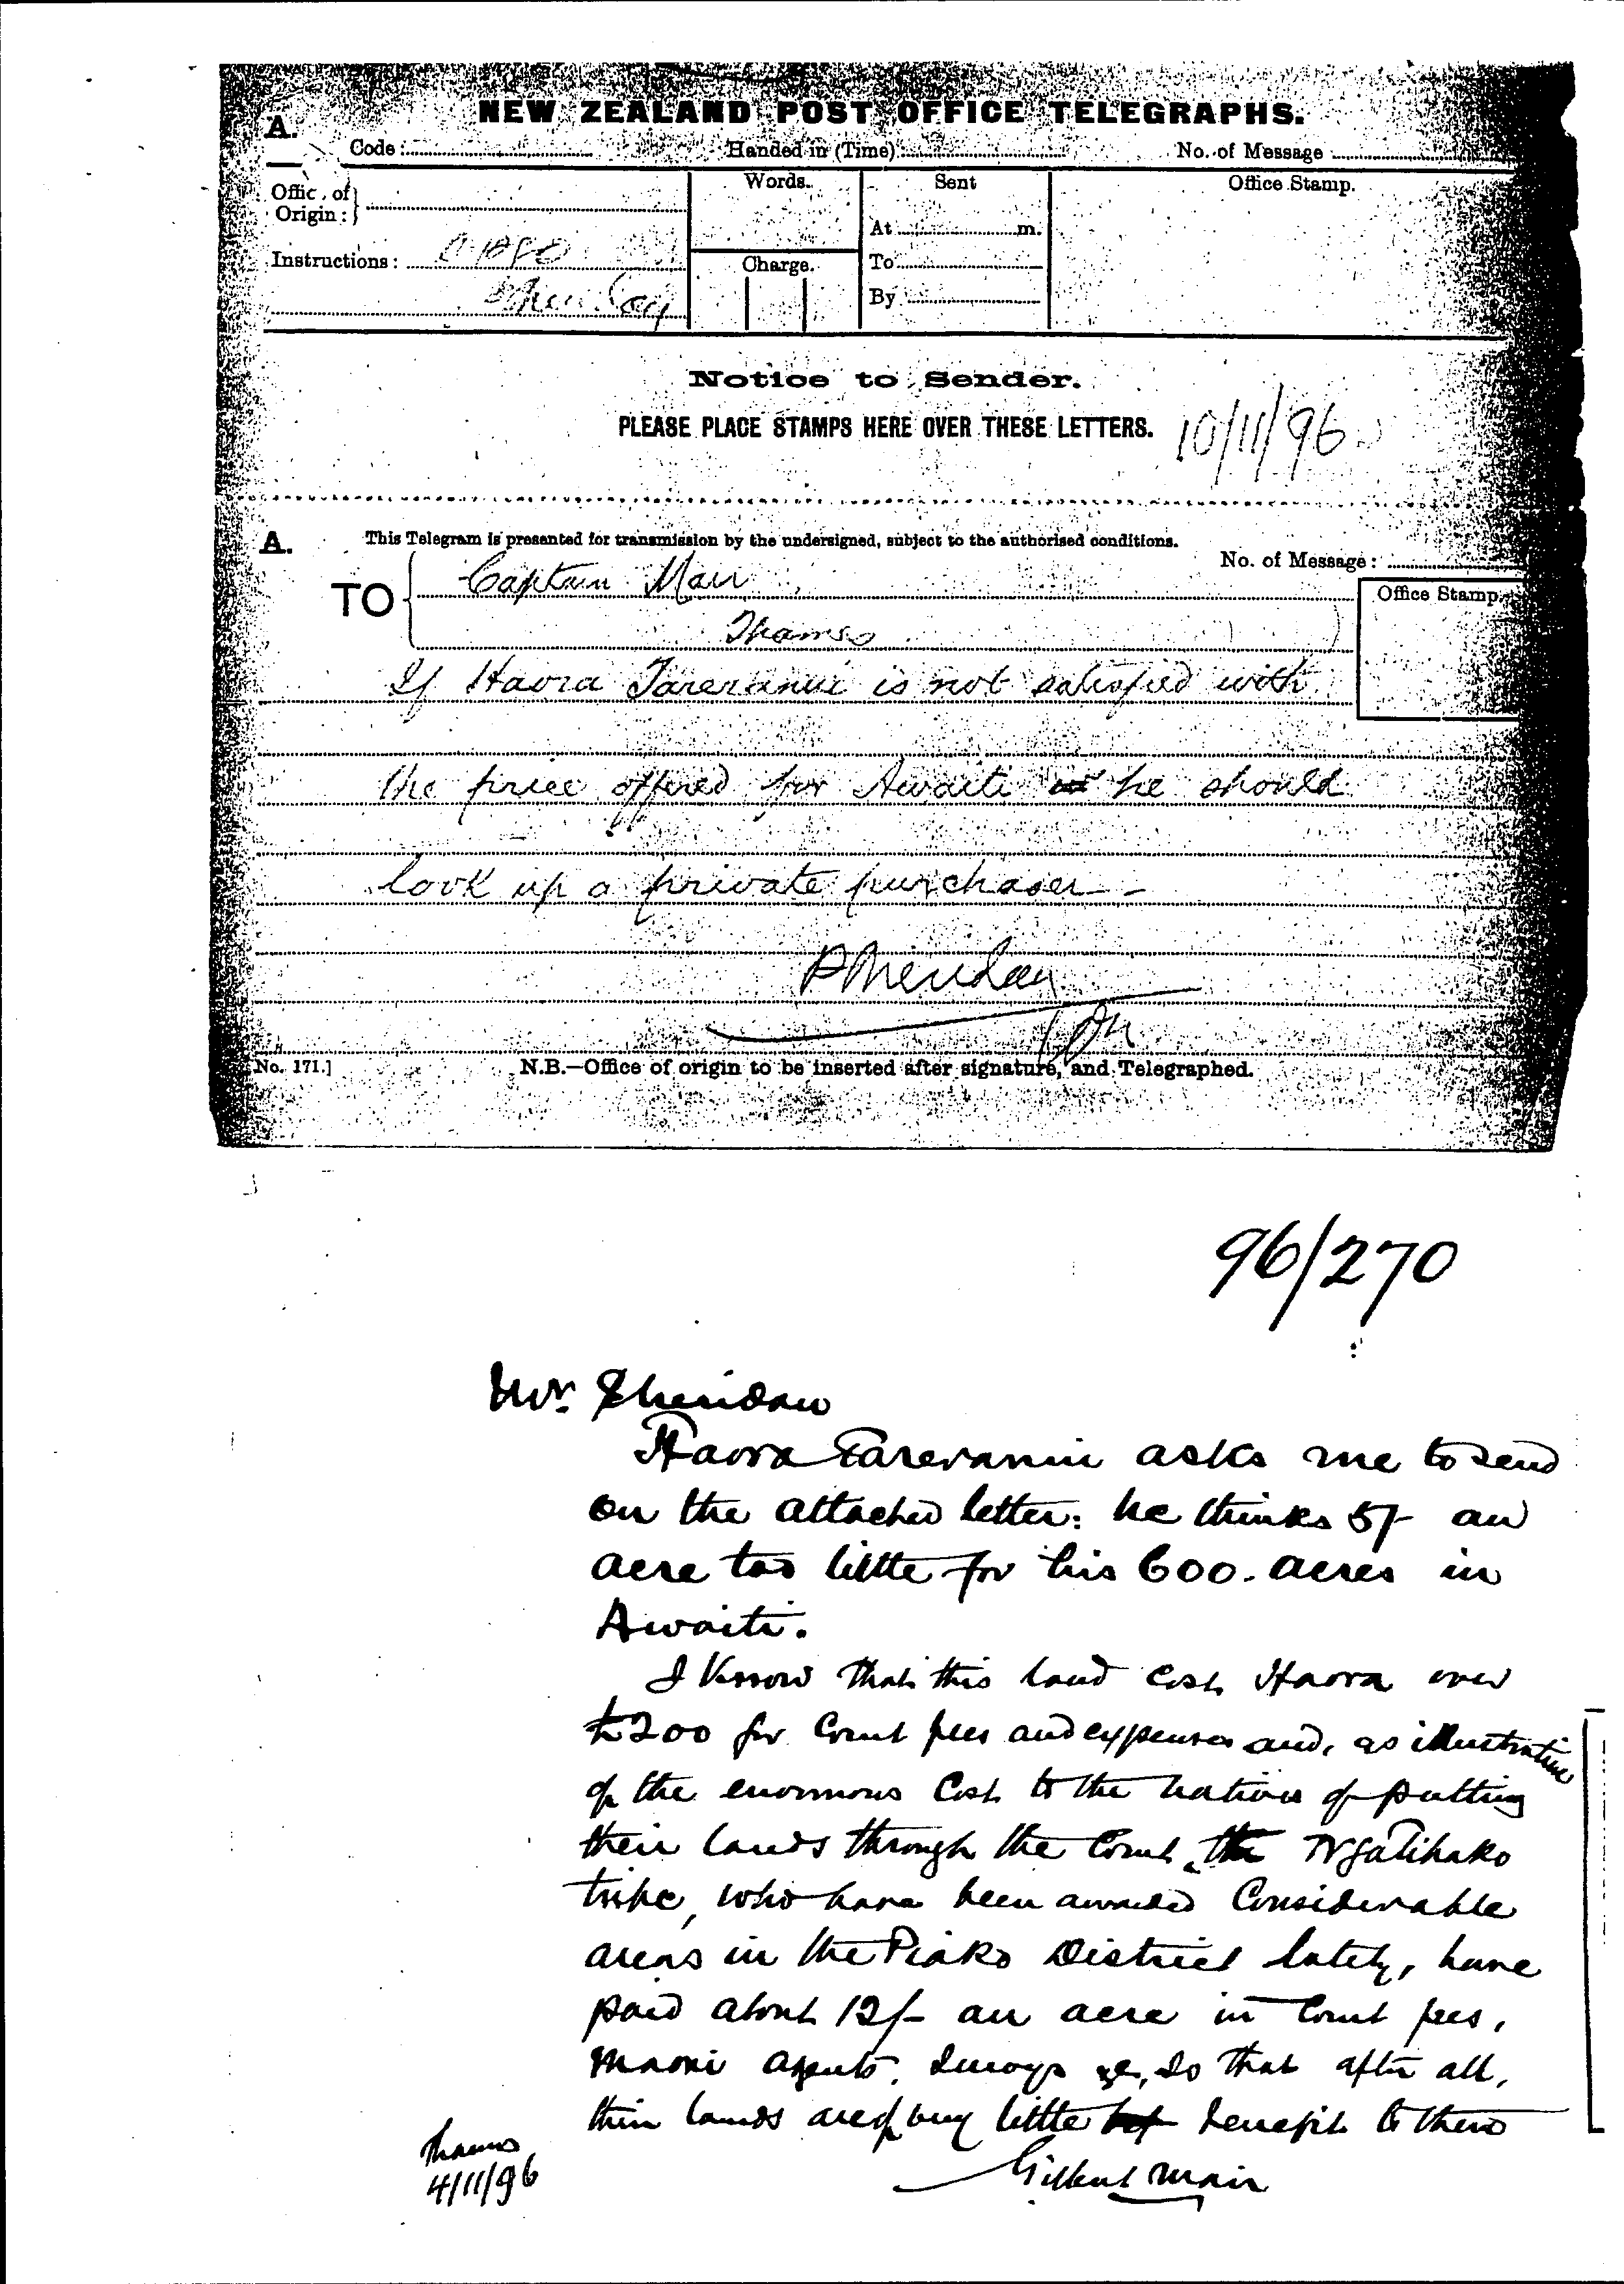 NEW ZEALAND POST OFFICE TELEGRAPHS.
A.
Code : Handed in (Time) No. of Message
Offic. of Origin :
Words.
Sent
Office Stamp.
At m.
Instructions :
Charge.
To
By
Notice to Sender.
PLEASE PLACE STAMPS HERE OVER THESE LETTERS.
10/11/96
A. This Telegram is presented for transmission by the undersigned, subject to the authorised conditions.
No. of Message :
TO Captain Mair
Office Stamp.
Thames
If Haora Tareranui is not satisfied with
the price offered for Awaiti he should
look up a private purchaser -
P Sheridan
No. 171.] N.B.—Office of origin to be inserted after signature, and Telegraphed.
96/270
Mr. Sheridan
Haora Tareranui asks me to send
on the attached letter: he thinks 5/- an
acre too little for his 600. acres in
Awaiti.
I know that this land cost Haora over
£200 for Court fees and expenses and, as illustrative
of the enormous cost to the natives of putting
their lands through the Court, the Ngatihako
tribe, who have been awarded considerable
areas in the Piako District lately, have
paid about 12/- an acre in Court fees,
Maori agents, surveys &c, so that after all,
their lands are of very little benefit to them
Gilbert Mair
Thames
4/11/96